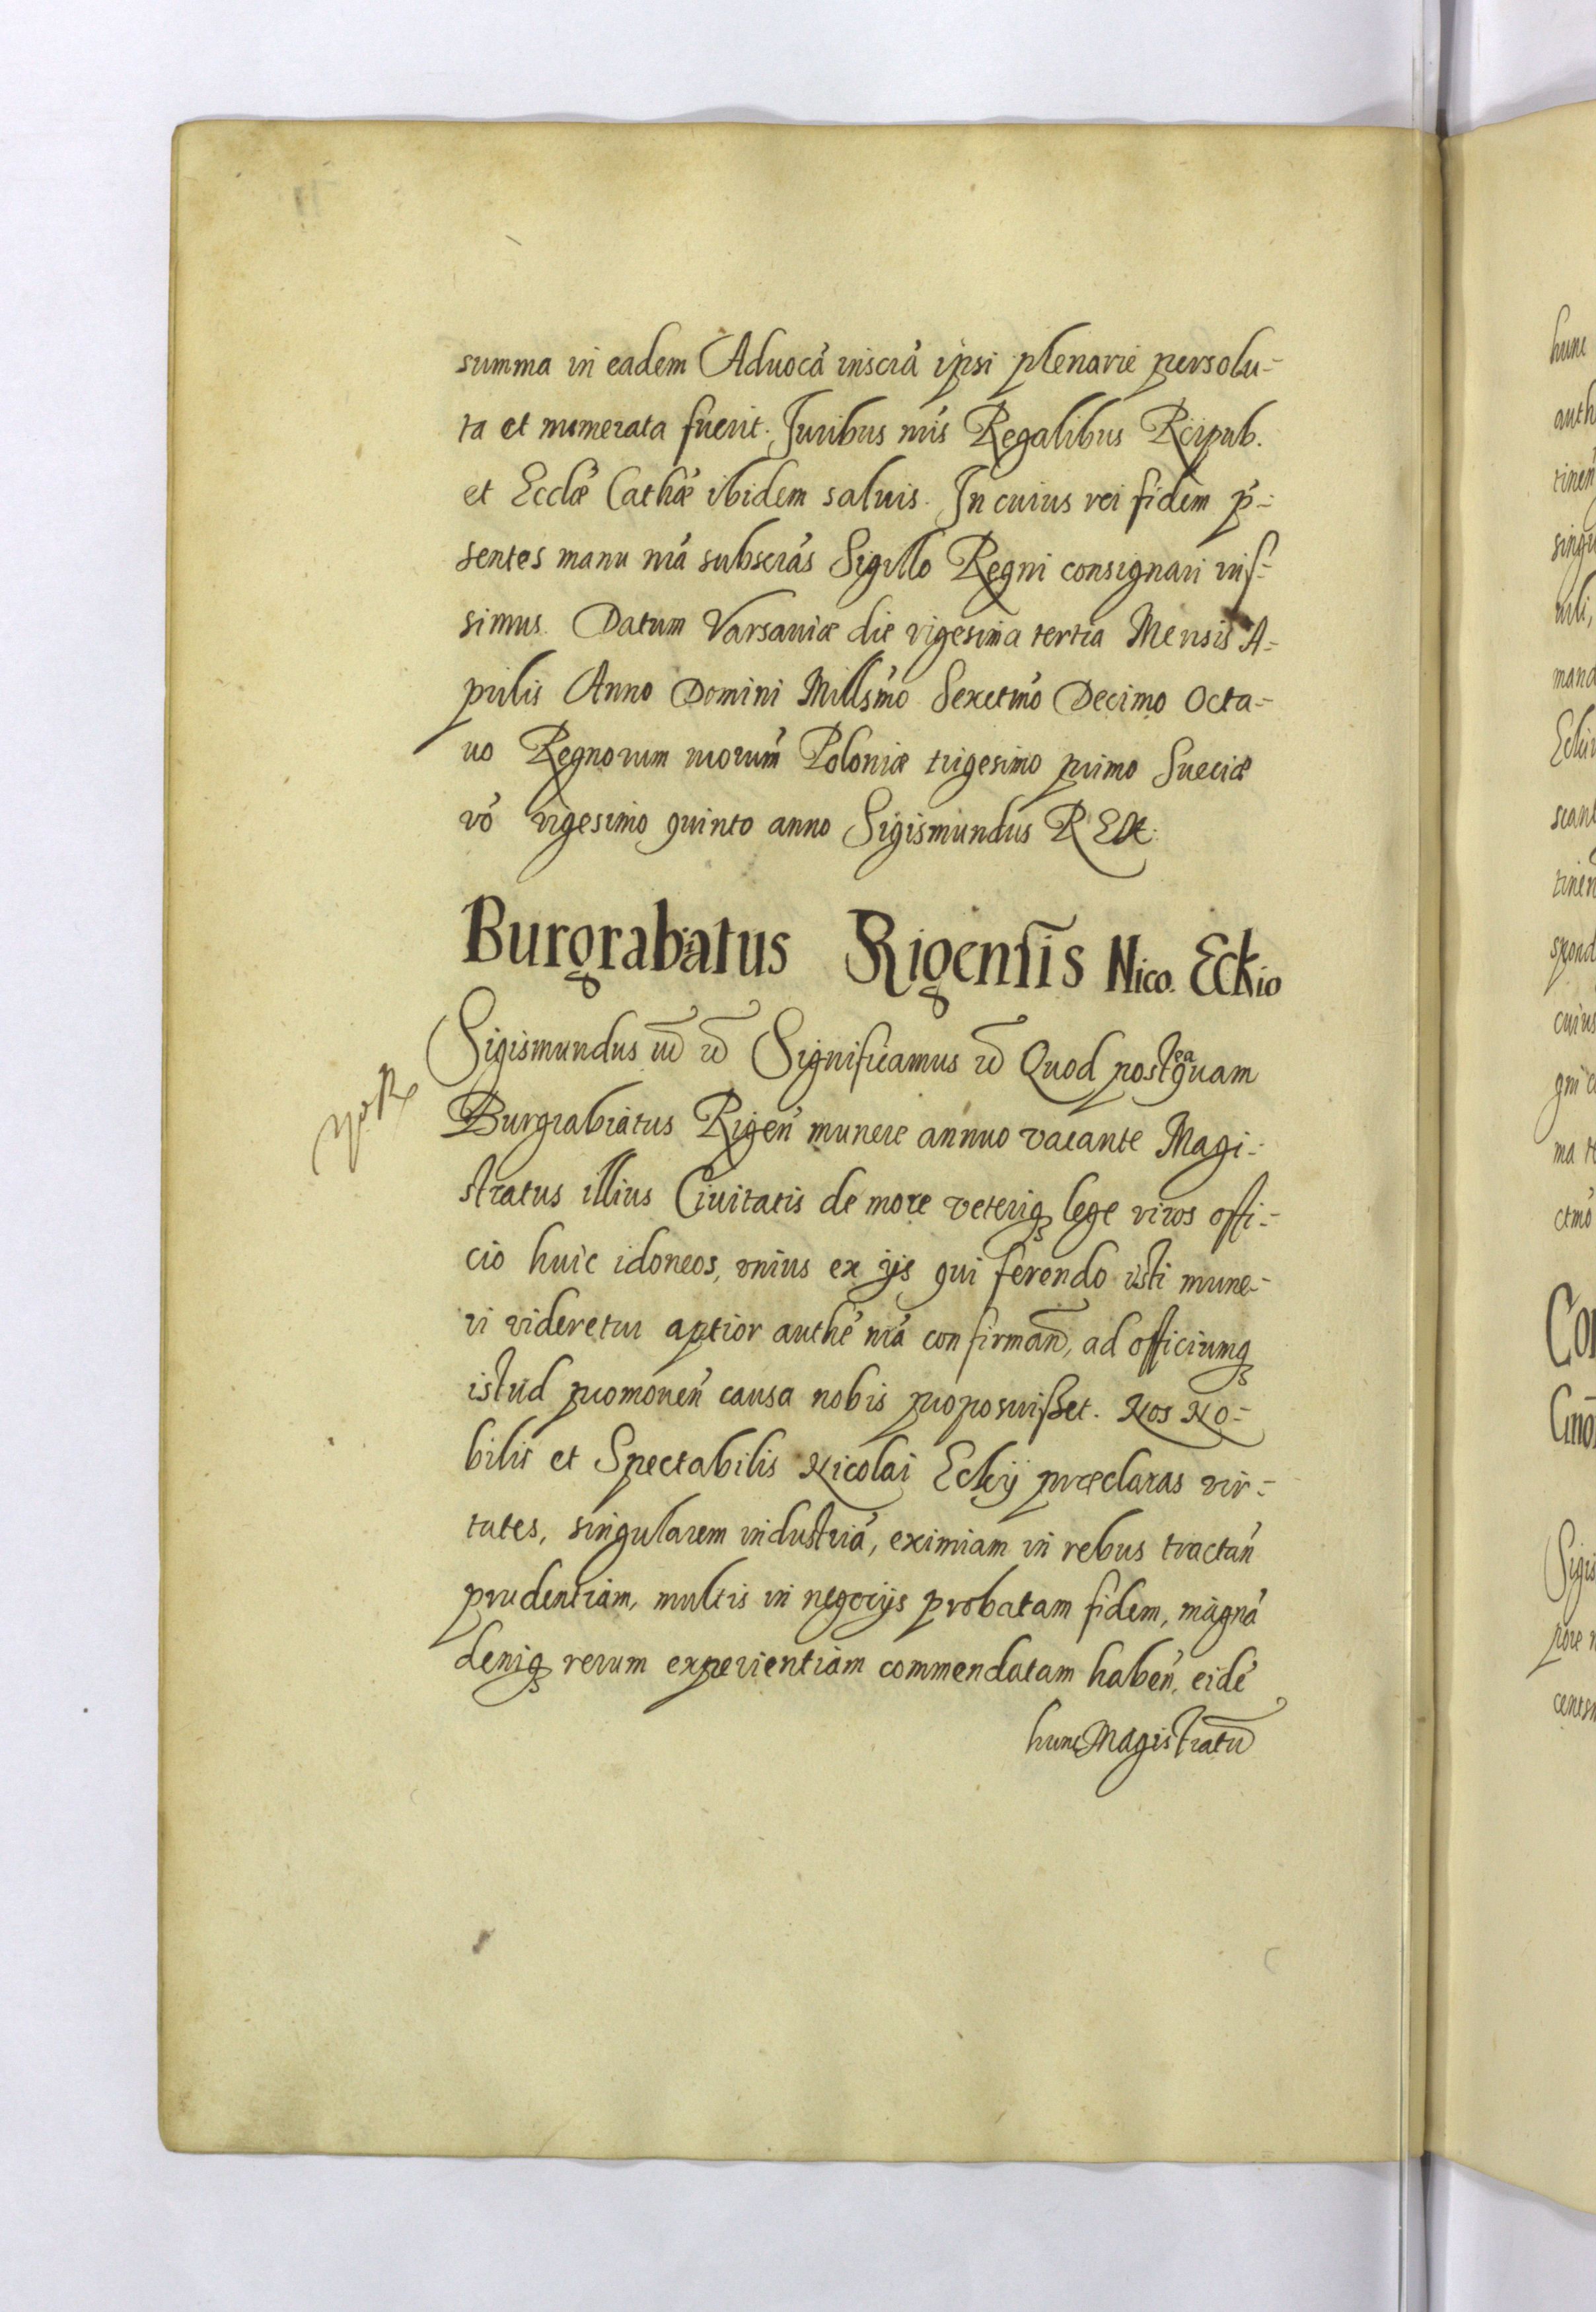 summa in eadem Aduocá inscrá ipsi plenarie persolu-
ta et numerata fuerit. Juribus nris Regalibus Rcipub.
et Ecclæ Cathæ ibidem saluis. In cuius rei fidem p-
sentes manu nrá subscrás Sigillo Regni consignari iuſ-
simus. Datum Varsauiæ die vigesima tertia Mensis A-
prilis Anno Domini Millsmo Sexctmo Decimo Octa-
uo Regnorum nrorum Poloniæ trigesimo primo Sueciæ
vó vigesimo quinto anno Sigismundus REX.
Burgrabiatus Rigenſis Nico. Eckio
Sigismundus Significamus Quod posteaquam
Burgrabiatus Rigen munere annuo vacante Magi-
stratus illius Ciuitatis de more veteriq lege viros offi-
cio huic idoneos, vnius ex ijs qui ferendo isti mune-
ri videretur aptior authe nrá confirman, ad officiumq
istud promouen causa nobis proposuißet. Nos No-
bilis et Spectabilis Nicolai Eckij præclaras vir-
tutes, singularem industriá, eximiam in rebus tractan
prudentiam, multis in negocijs probatam fidem, magná
deniq rerum experientiam commendatam haben, eidé
hunc Magistratu
hunc
auth
tinen
singu
mand
tinen
spond
cuius
ma
ctmo
Con
Sigis